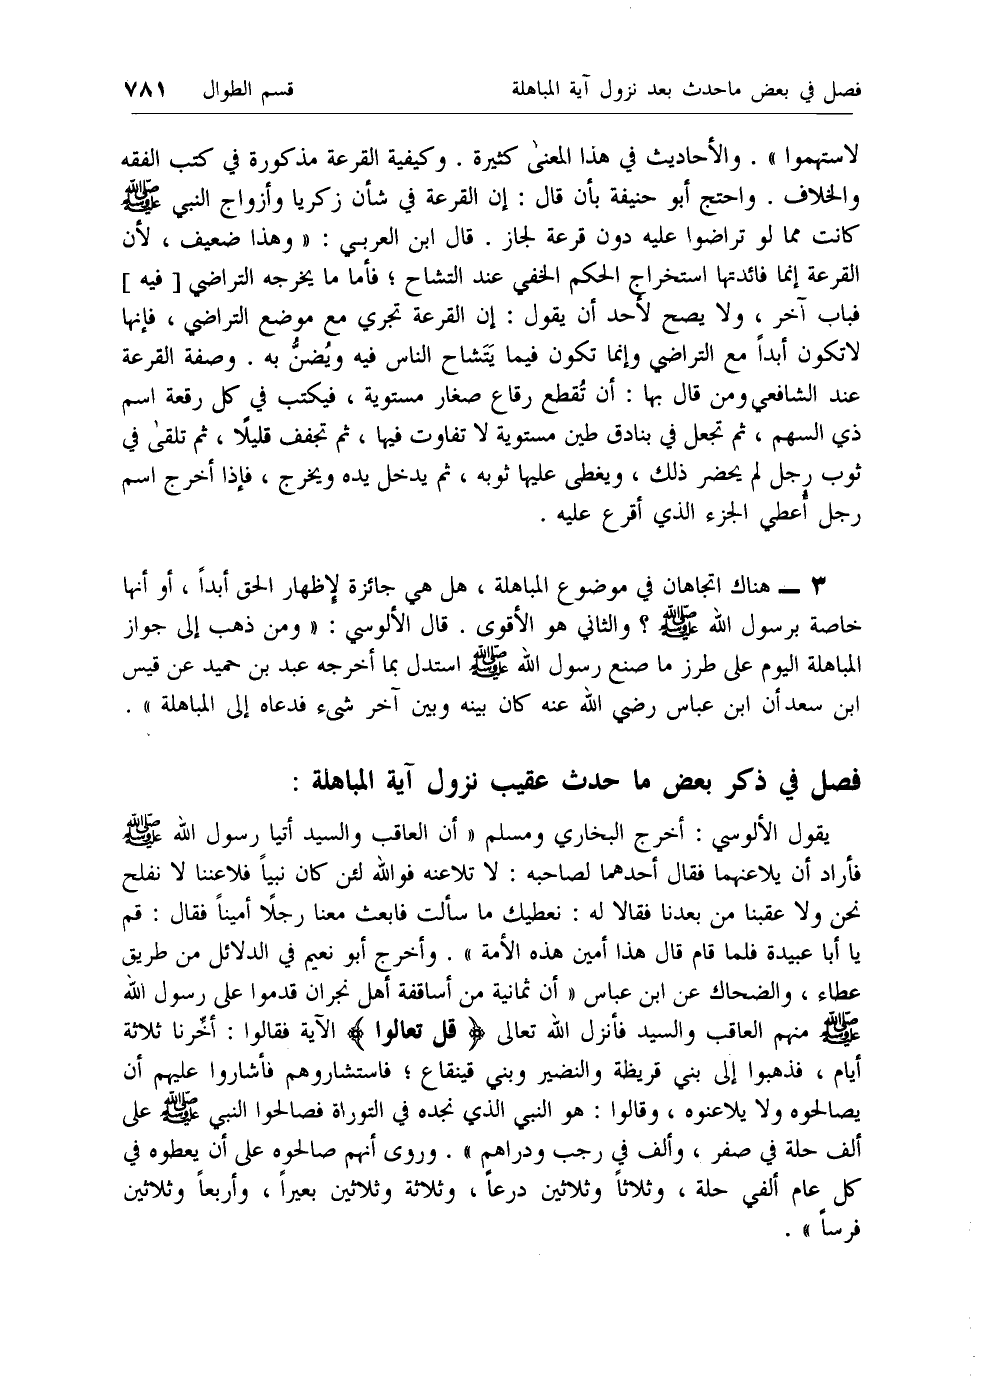 فصل في بعض ماحدث بعد نزول آية المباهلة قسم الطوال ٧٨١
لاستهموا » . والأحاديث في هذا المعنىٰ كثيرة . وكيفية القرعة مذكورة في كتب الفقه
والخلاف . واحتج أبو حنيفة بأن قال : إن القرعة في شأن زكريا وأزواج النبي ﷺ
كانت مما لو تراضوا عليه دون قرعة لجاز . قال ابن العربي : « وهذا ضعيف ، لأن
القرعة إنما فائدتها استخراج الحكم الخفي عند التشاح ؛ فأما ما يخرجه التراضي [ فيه ]
فباب آخر ، ولا يصح لأحد أن يقول : إن القرعة تجري مع موضع التراضي ، فإنها
لاتكون أبداً مع التراضي وإنما تكون فيما يَتَشاح الناس فيه ويُضنُّ به . وصفة القرعة
عند الشافعي ومن قال بها : أن تُقطع رقاع صغار مستوية ، فيكتب في كل رقعة اسم
ذي السهم ، ثم تجعل في بنادق طين مستوية لا تفاوت فيها ، ثم تجفف قليلًا ، ثم تلقىٰ في
ثوب رجل لم يحضر ذلك ، ويغطى عليها ثوبه ، ثم يدخل يده ويخرج ، فإذا أخرج اسم
رجل أُعطي الجزء الذي أقرع عليه .
٣ ـ هناك اتجاهان في موضوع المباهلة ، هل هي جائزة لإظهار الحق أبداً ، أو أنها
خاصة برسول الله ﷺ ؟ والثاني هو الأقوى . قال الألوسي : « ومن ذهب إلى جواز
المباهلة اليوم على طرز ما صنع رسول الله ﷺ استدل بما أخرجه عبد بن حميد عن قيس
ابن سعد أن ابن عباس رضي الله عنه كان بينه وبين آخر شىء فدعاه إلى المباهلة » .
فصل في ذكر بعض ما حدث عقيب نزول آية المباهلة :
يقول الألوسي : أخرج البخاري ومسلم « أن العاقب والسيد أتيا رسول الله ﷺ
فأراد أن يلاعنهما فقال أحدهما لصاحبه : لا تلاعنه فوالله لئن كان نبياً فلاعننا لا نفلح
نحن ولا عقبنا من بعدنا فقالا له : نعطيك ما سألت فابعث معنا رجلًا أميناً فقال : قم
يا أبا عبيدة فلما قام قال هذا أمين هذه الأمة » . وأخرج أبو نعيم في الدلائل من طريق
عطاء ، والضحاك عن ابن عباس « أن ثمانية من أساقفة أهل نجران قدموا على رسول الله
ﷺ منهم العاقب والسيد فأنزل الله تعالى ﴿ قل تعالوا ﴾ الآية فقالوا : أخّرنا ثلاثة
أيام ، فذهبوا إلى بني قريظة والنضير وبني قينقاع ؛ فاستشاروهم فأشاروا عليهم أن
يصالحوه ولا يلاعنوه ، وقالوا : هو النبي الذي نجده في التوراة فصالحوا النبي ﷺ على
ألف حلة في صفر ، وألف في رجب ودراهم » . وروى أنهم صالحوه على أن يعطوه في
كل عام ألفي حلة ، وثلاثاً وثلاثين درعاً ، وثلاثة وثلاثين بعيراً ، وأربعاً وثلاثين
فرساً » .